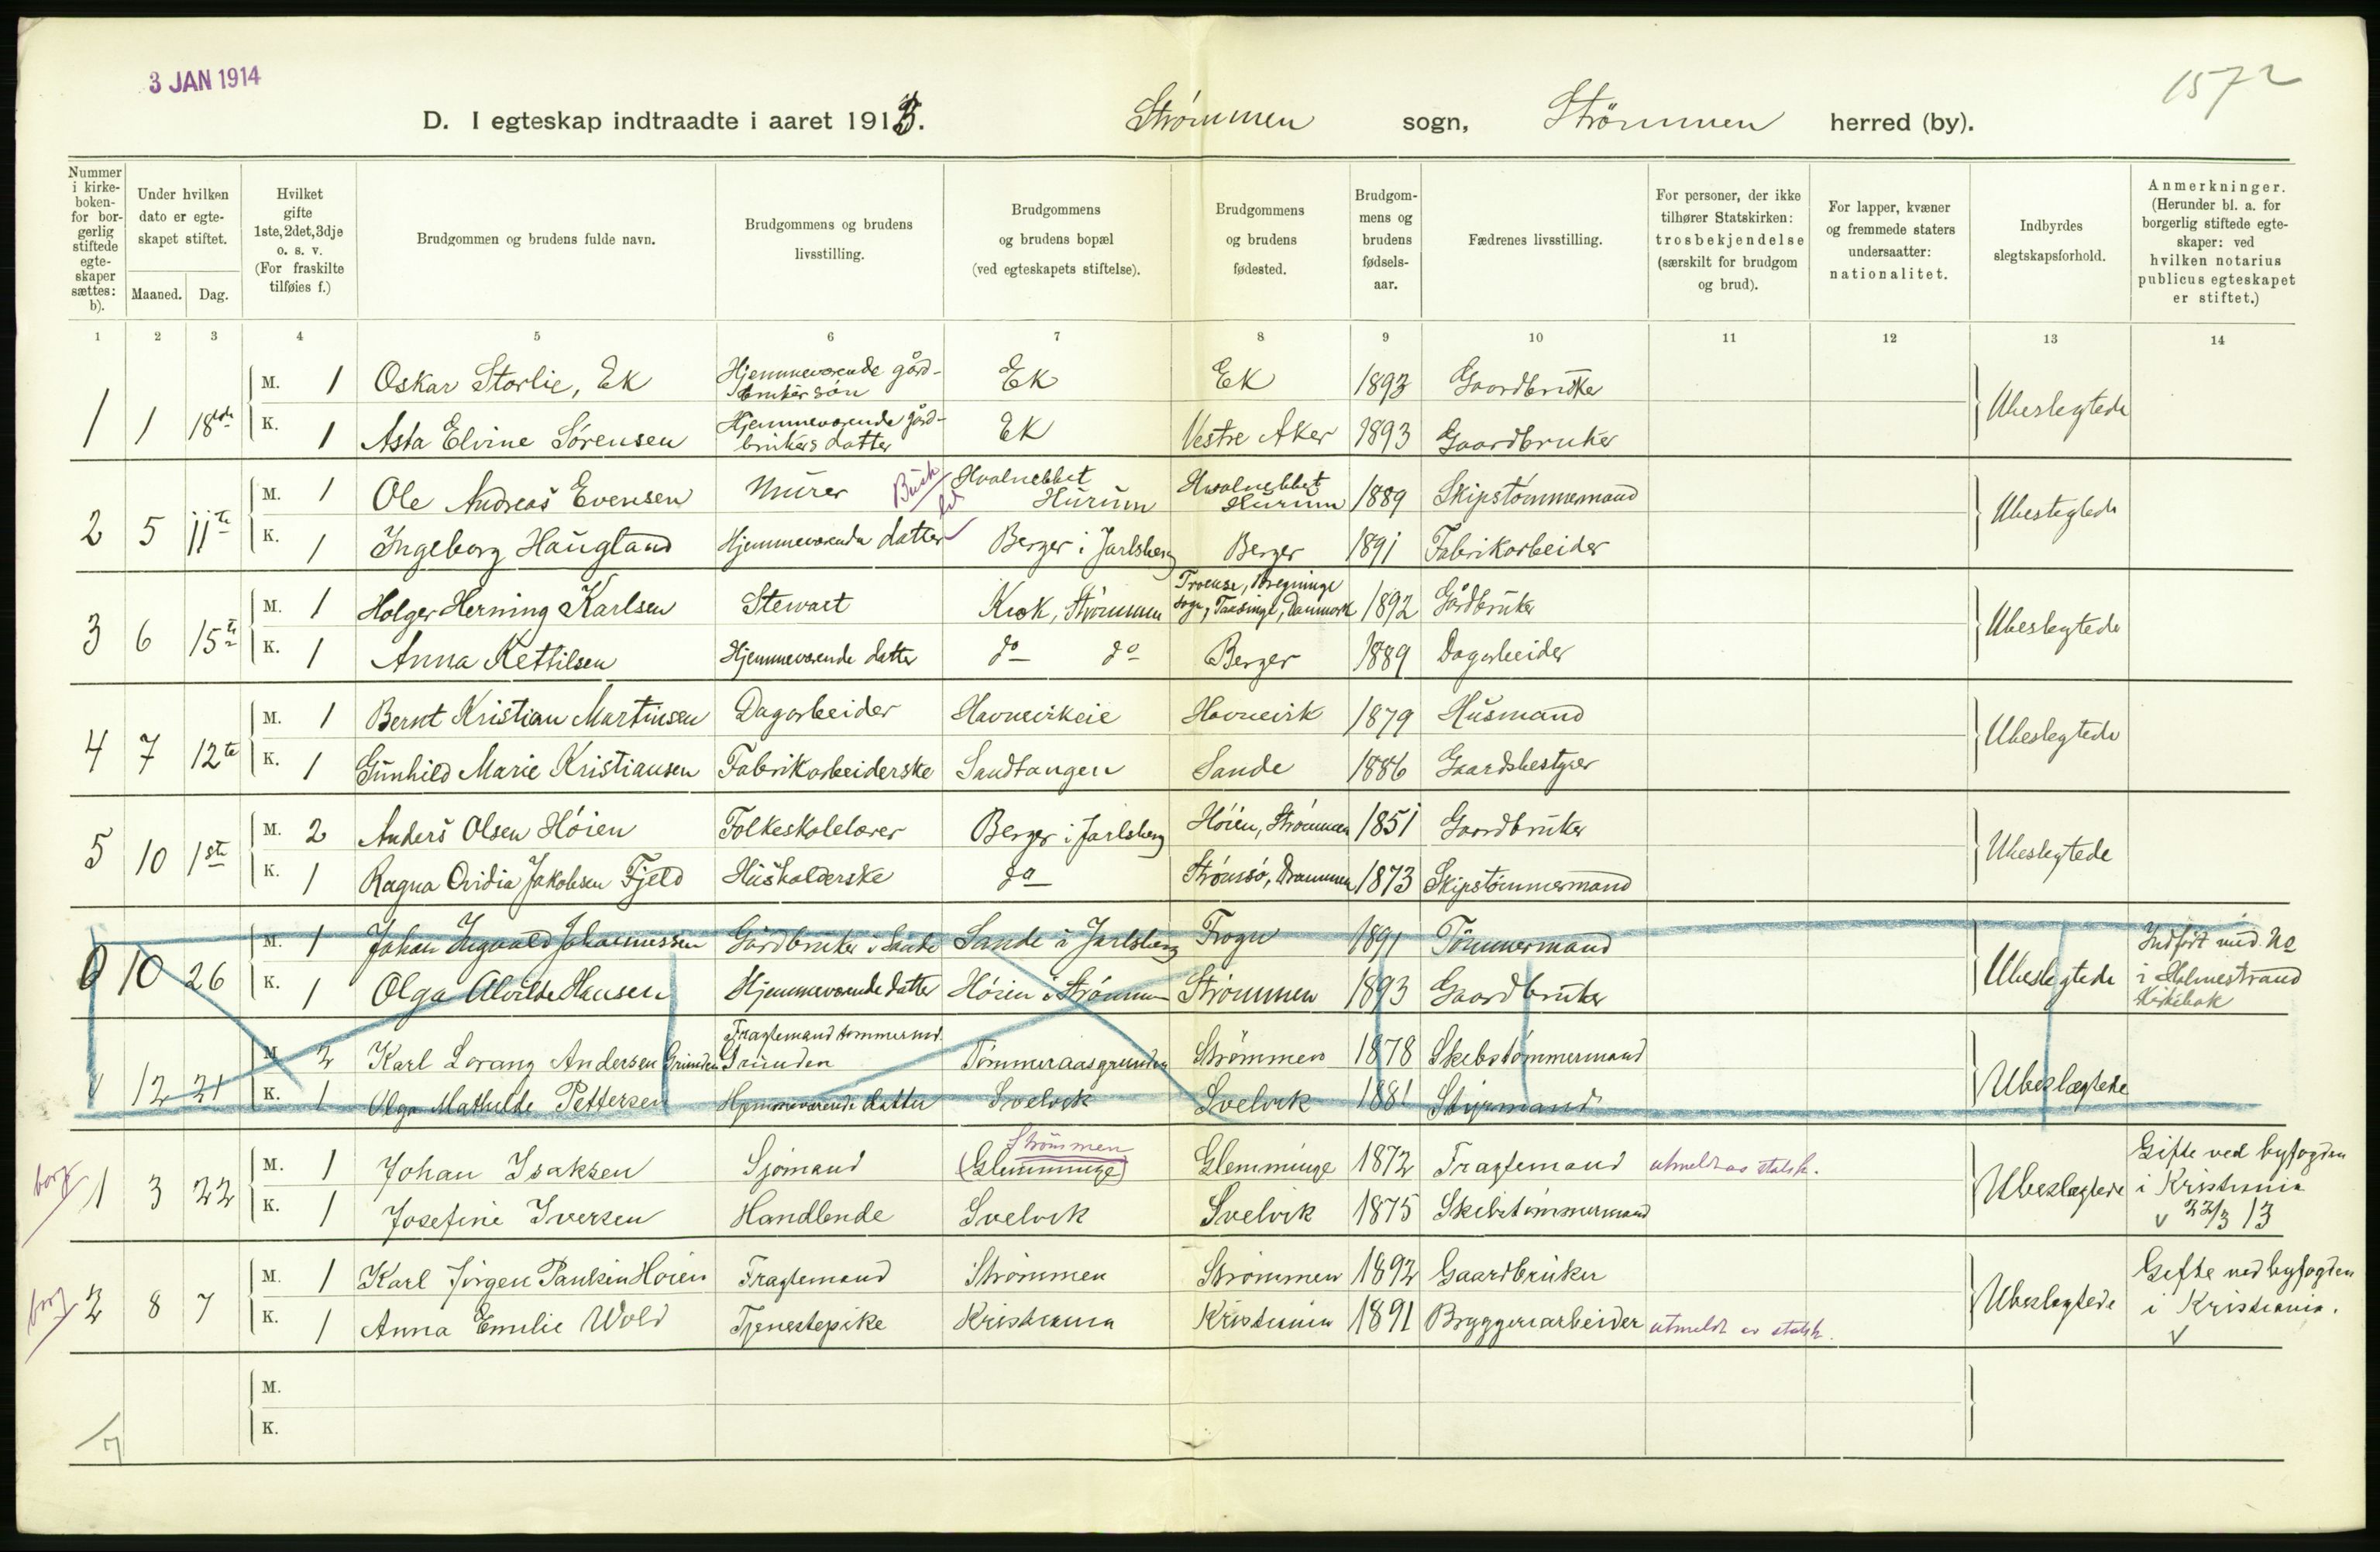 3 JAN 1914
1572
D. I egteskap indtraadte i aaret 1913. Strømmen sogn, Strömmen herred (by).
Nummer i kirke-boken- for bor-gerlig stiftede egte-skaper sættes: b).
Under hvilken dato er egte-skapet stiftet.
Maaned. Dag.
Hvilket gifte 1ste, 2det, 3dje o. s. v. (For fraskilte tilføies f.)
Brudgommen og brudens fulde navn.
Brudgommens og brudens livsstilling.
Brudgommens og brudens bopæl (ved egteskapets stiftelse).
Brudgommens og brudens fødested.
Brudgom-mens og brudens fødsels-aar.
Fædrenes livsstilling.
For personer, der ikke tilhører Statskirken: trosbekjendelse (særskilt for brudgom og brud).
For lapper, kvæner og fremmede staters undersaatter: nationalitet.
Indbyrdes slegtskapsforhold.
Anmerkninger. (Herunder bl. a. for borgerlig stiftede egte-skaper: ved hvilken notarius publicus egteskapet er stiftet.)
1 2 3 4 5 6 7 8 9 10 11 12 13 14
M. 1 Oskar Storlie, Ek Hjemmeværende gård-brukersön Ek Ek 1893 Gaardbruker
1 1 18de Ubeslegtede
K. 1 Asta Elvine Sørensen Hjemmeværende gård-brukers datter Ek Vestre Aker 1893 Gaardbruker
M. 1 Ole Andreas Evensen Murer Hvalnebbet Hurum Hvalnebbet Hurum 1889 Skipstømmermand
2 5 11te Ubeslegtede
K. 1 Ingeborg Haugland Hjemmeværende datter Berger i Jarlsberg Berger 1891 Fabrikarbeider
M. 1 Holger Herning Karlsen Stewart Krok, Strømmen Troense, Bregninge sogn, Taasinge, Danmark 1892 Gårdbruker
3 6 15te Ubeslegtede
K. 1 Anna Kettilsen Hjemmeværende datter do do Berger 1889 Dagarbeider
M. 1 Bernt Kristian Martinsen Dagarbeider Havnevikeie Havnevik 1879 Husmand
4 7 12te Ubeslegtede
K. 1 Gunhild Marie Kristiansen Fabrikarbeiderske Sandtangen Sande 1886 Gaardsbestyrer
M. 2 Anders Olsen Høien Folkeskolelærer Berger i Jarlsberg Høien, Strømmen 1851 Gaardbruker
5 10 1ste Ubeslegtede
K. 1 Ragna Ovidia Jakobsen Fjeld Husholderske do Strømsø, Drammen 1873 Skipstømmermand
M. 1 Johan Ingvald Johannessen Gårdbruker i Sande Sande i Jarlsberg Frogn 1891 Tømmermand
6 10 26 Ubeslegtede Indført und. No i Holmestrand Kirkebok
K. 1 Olga Alvilde Hansen Hjemmeværende datter Høien i Strømmen Strømmen 1893 Gaardbruker
M. 2 Karl Lorang Andersen Grunden Fragtemand Grunden Tømmeraasgrunden Strømmen 1878 Skibstømmermand
12 21 Ubeslægtede
K. 1 Olga Mathilde Pettersen Hjemmeværende datter Svelvik Svelvik 1881 Skipsmand
Strømmen
borg M. 1 Johan Isaksen Sjømand (Glemminge) Glemminge 1872 Fragtemand utmeldt av statsk.
1 3 22 Ubeslægtede Gifte ved byfogden i Kristiania v 22/3 13
K. 1 Josefine Iversen Handlende Svelvik Svelvik 1875 Skibstømmermand
borg M. 1 Karl Jørgen Paulsen Høien Fragtemand Strømmen Strømmen 1892 Gaardbruker
2 8 7 Ubeslegtede Gifte ved byfogden i Kristiania. v
K. 1 Anna Emilie Wold Tjenestepike Kristiania Kristiania 1891 Bryggeriarbeider utmeldt av statsk.
M.
K.
7